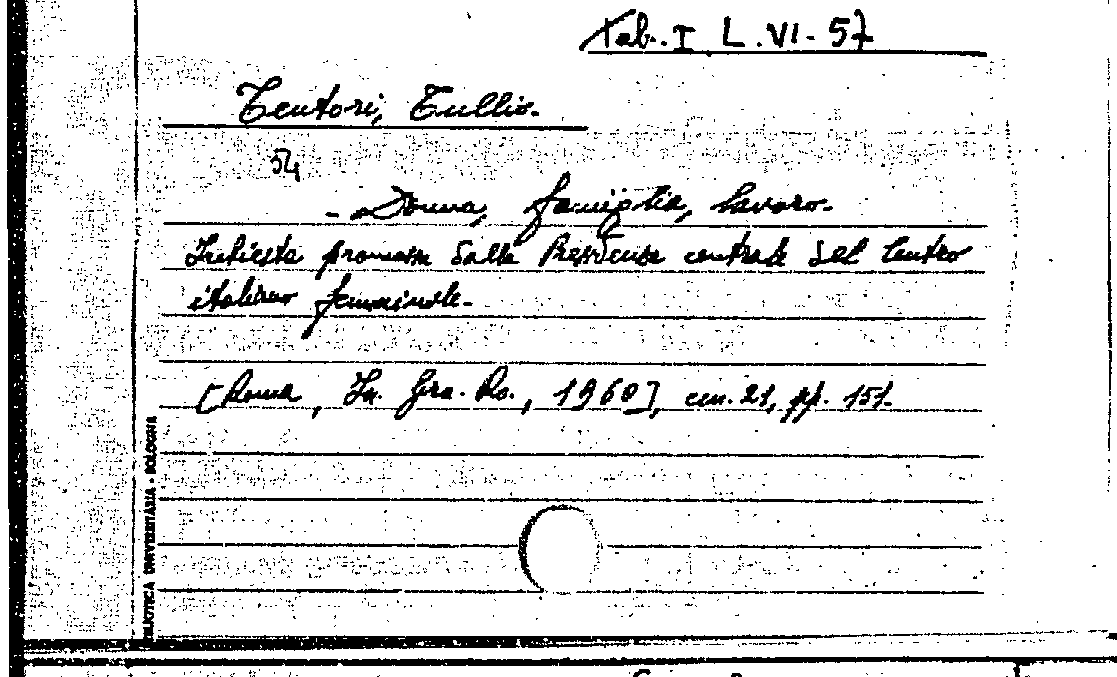 Tab. I L. VI - 57
Tentori, Tullio.
54
- Donna, famiglia, lavoro.
Inchiesta promossa dalla Presidenza centrale del Centro
italiano femminile.
[Roma, In. Gra. Ro., 1960], cm. 21, pp. 151.
BIBLIOTECA UNIVERSITARIA - BOLOGNA